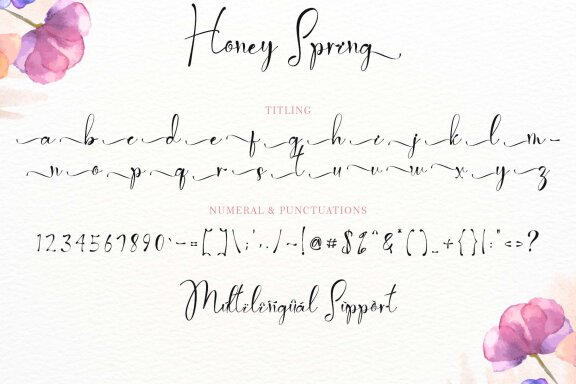 Honey Spring
TITLING
a b c d e f g h i j k l m
n o p q r s t u v w x y z
NUMERAL & PUNCTUATIONS
1234567890`-=[]\;',./~!@#$%^&*()_+{}|:"<>?
Multilingual Support